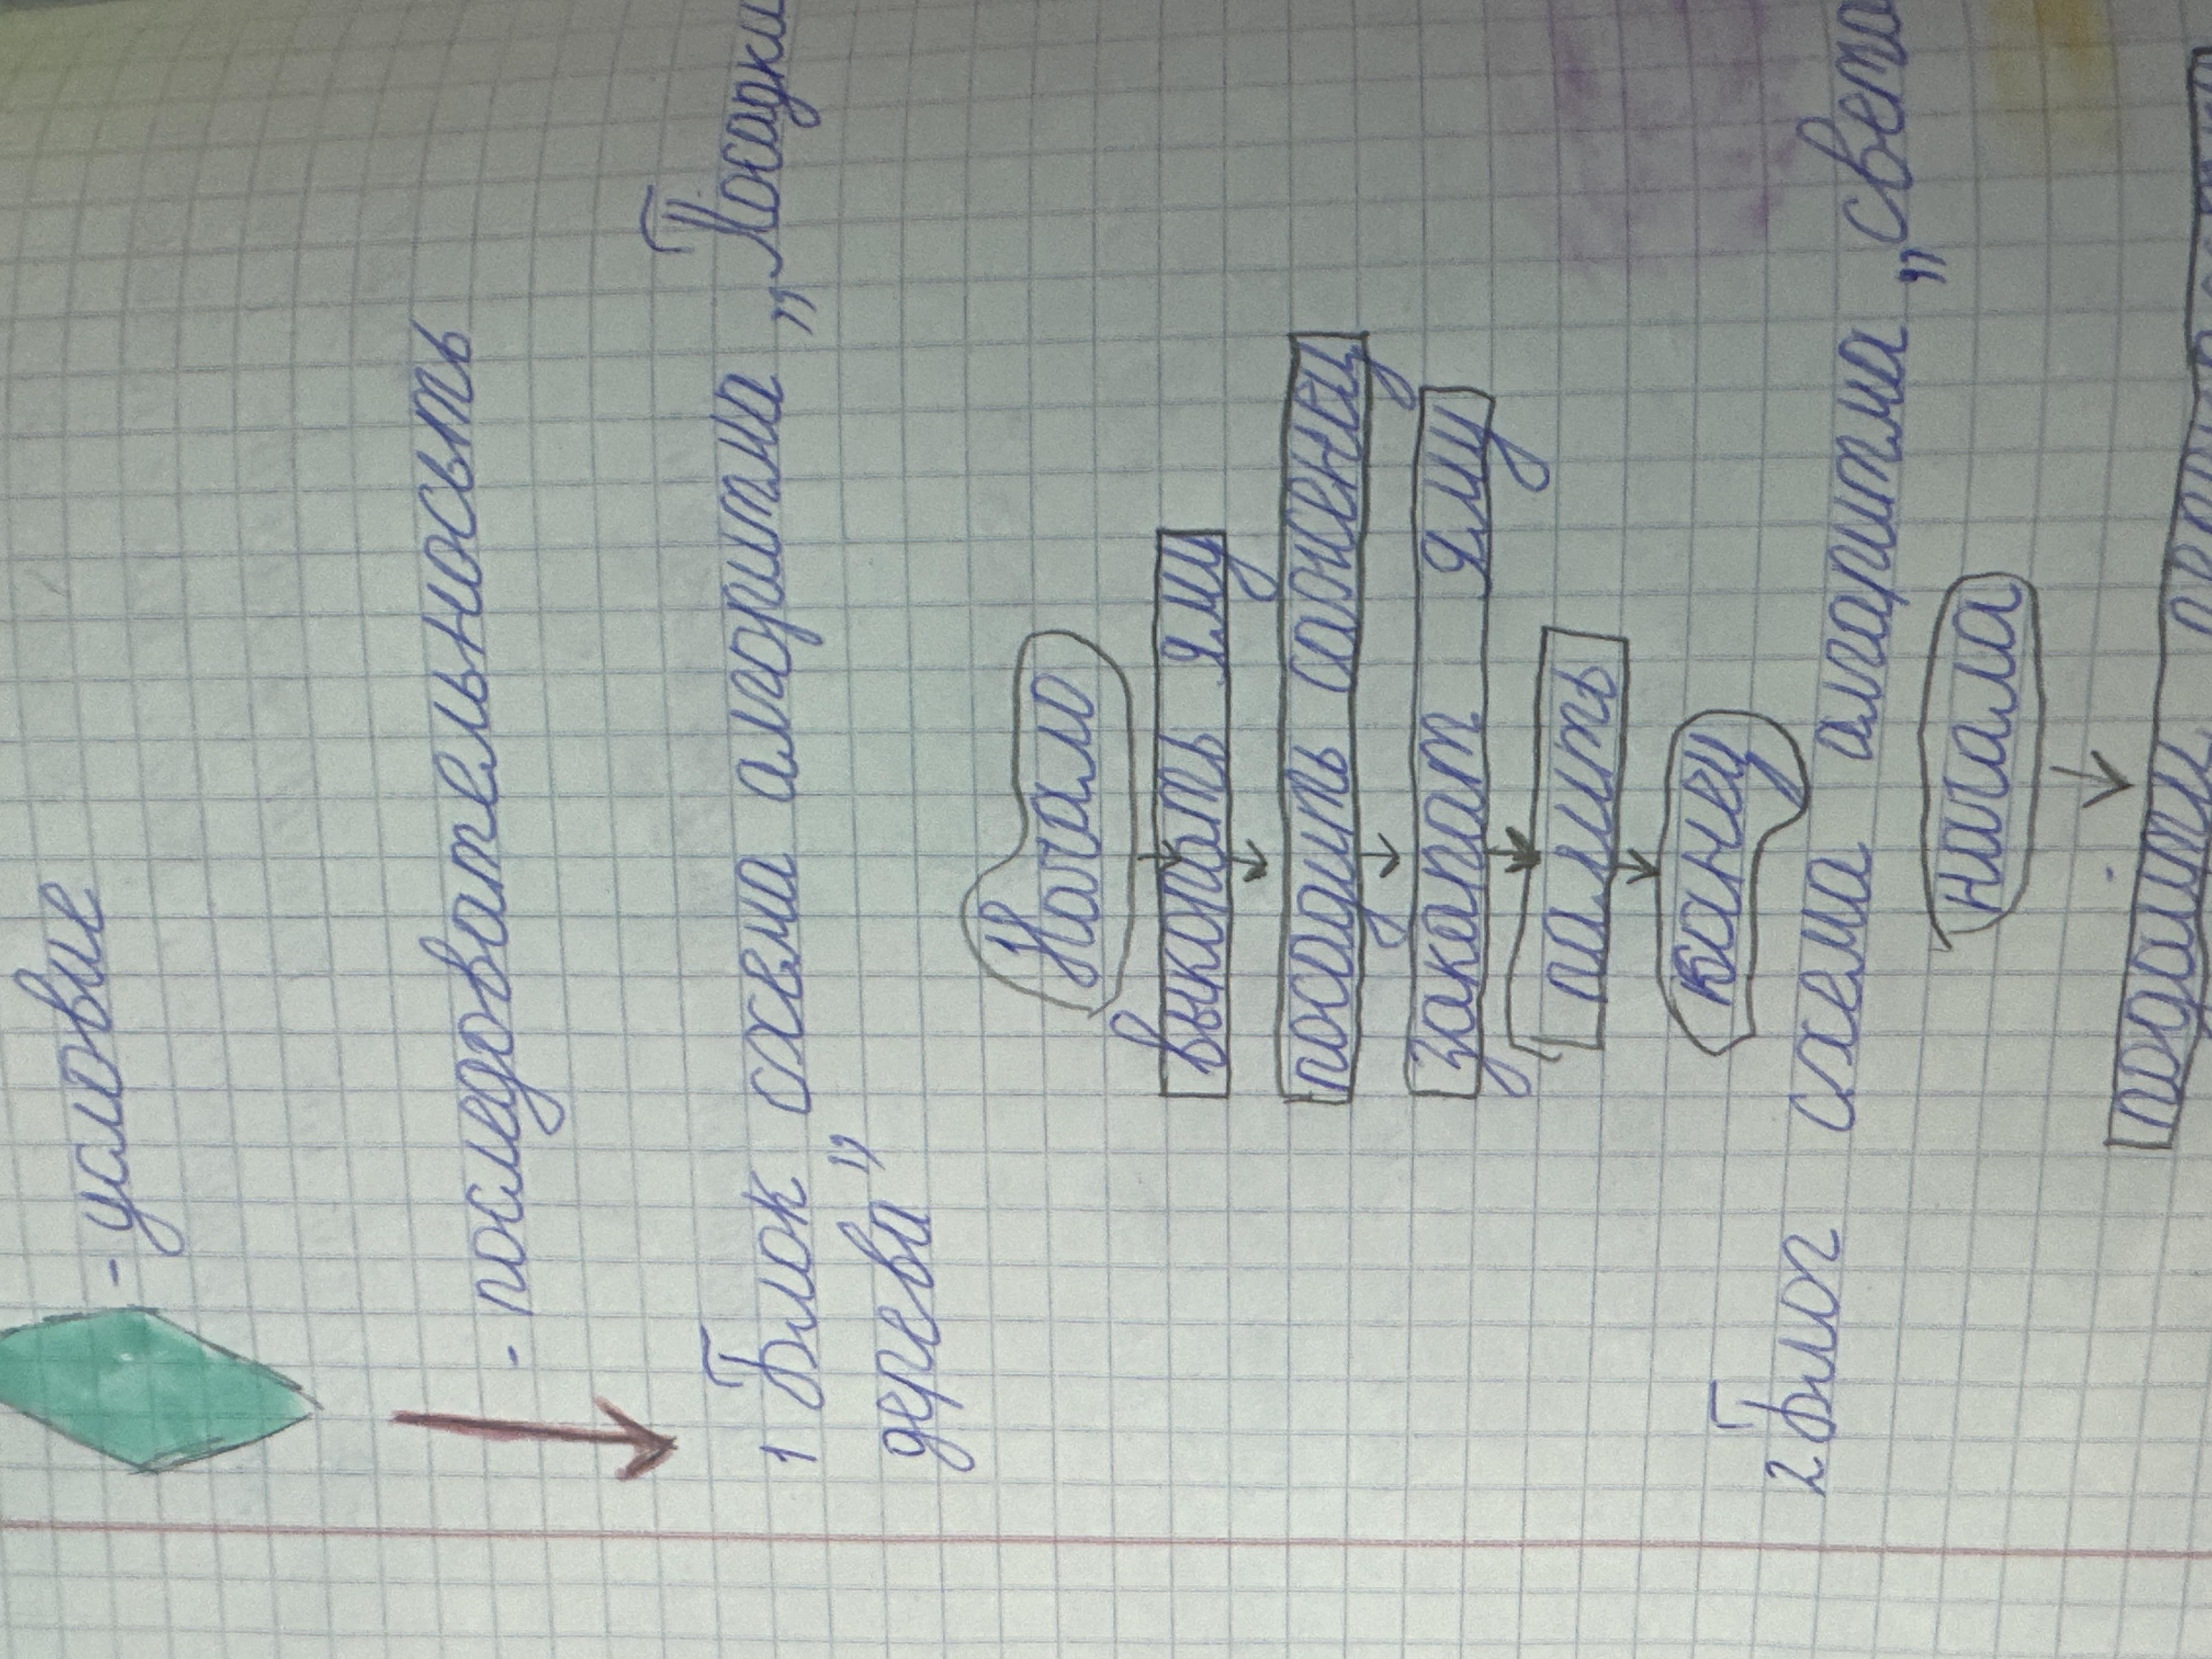 - условие
- последовательность
1 Блок схема алгоритма „Посадки
дерева"
Начало
выкопать яму
посадить саженец
закапат яму
палить
канец
2 Блог схема алгаритма „света
начала
подойти